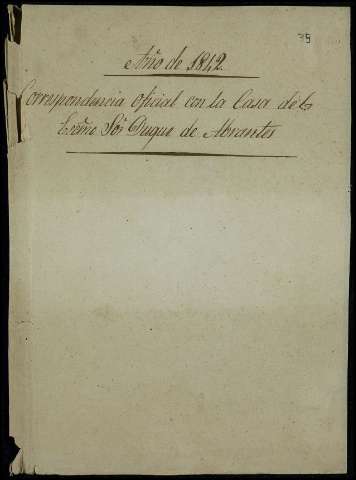 75
Año de 1842
Correspondencia oficial con la Casa del
Exmo Sor Duque de Abrantes